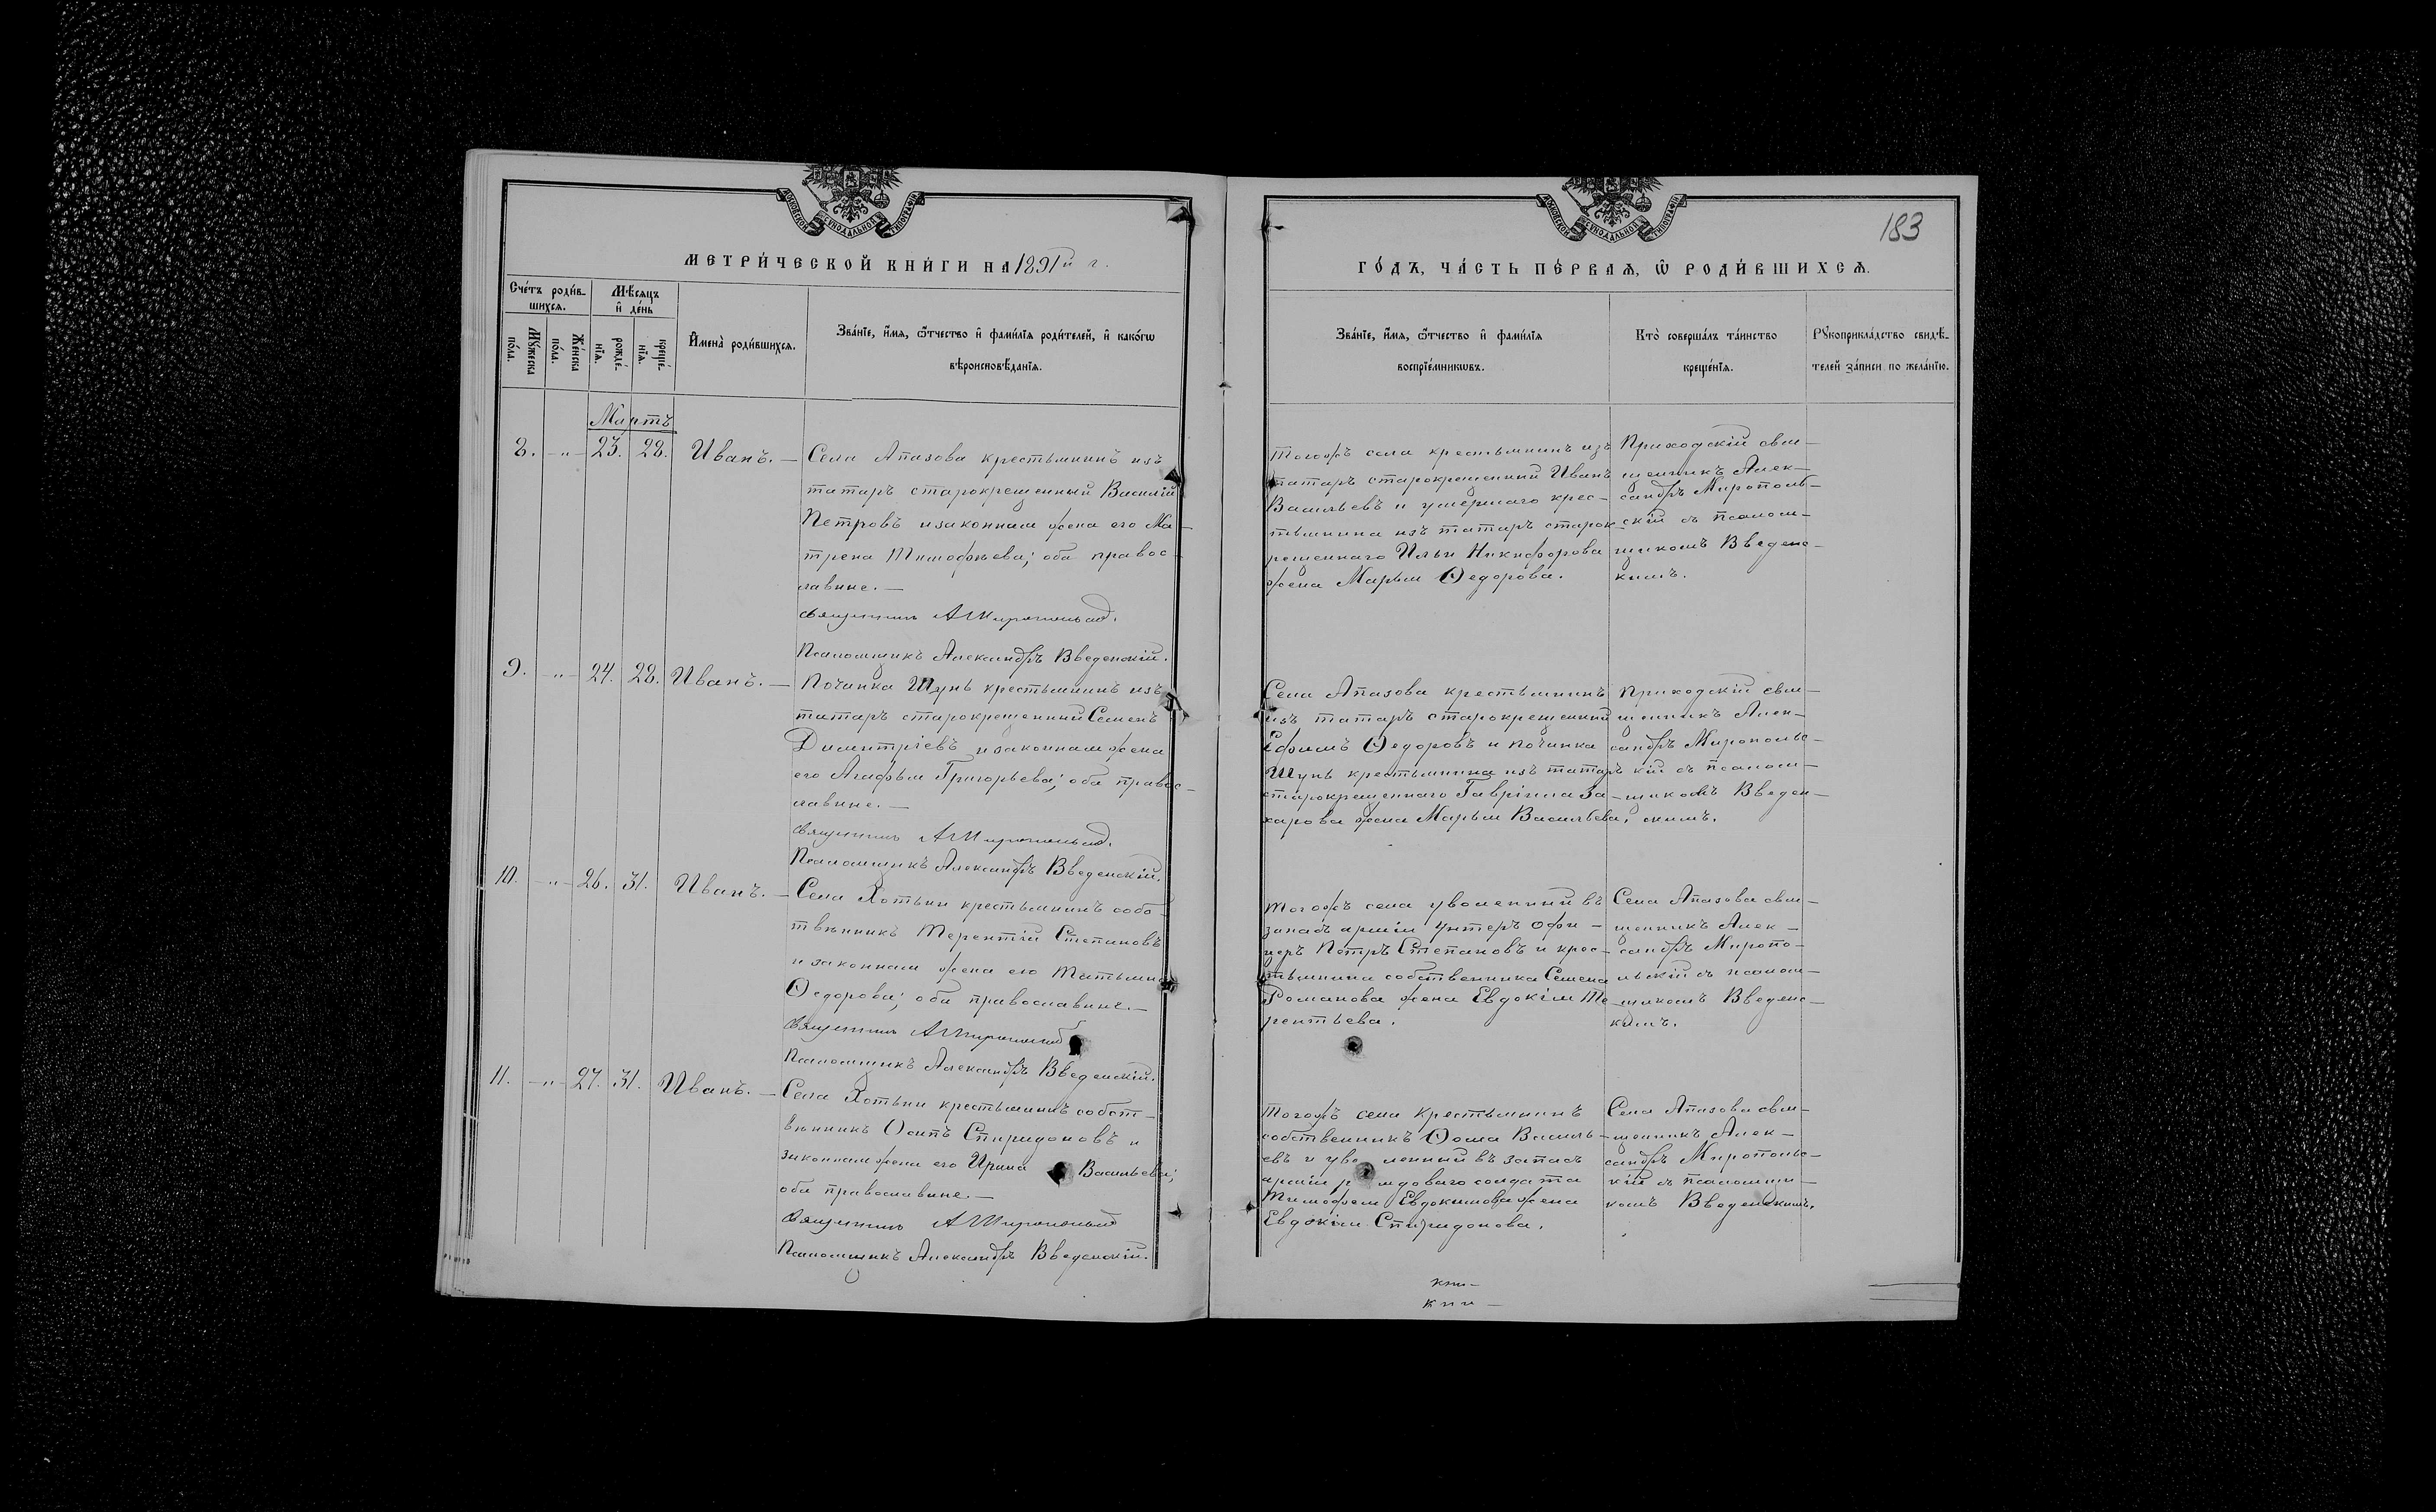 МОСКОВСКОЙ СѴНОДАЛЬНОЙ ТИПОГРАФІИ
МЕТРИ́ЧЕСКОЙ КНИ́ГИ НА 1891й г.
Сче́тъ роди́в-
шихсѧ.
Мѣ́сѧцъ
и҆ де́нь
Мꙋ́жеска
по́ла.
Же́нска
по́ла.
рожде́-
нїѧ.
креще́-
нїѧ.
И҆мена̀ роди́вшихсѧ.
Зва́нїе, и҆́мѧ, ѻ҆́тчество и҆ фами́лїѧ роди́телей, и҆ како́гѡ
вѣроисповѣ́данїѧ.
Мартъ
8. -"- 23. 28. Иванъ. — Села Апазова крестьянинъ изъ
татаръ старокрещенный Василій
Петровъ и законная жена его Ма-
трена Тимофѣева; оба правос-
лавные. —
Священникъ А Миропольскій.
Псаломщикъ Александръ Введенскій.
9. -"- 24. 28. Иванъ. — Починка Шунь крестьянинъ изъ
татаръ старокрещенный Семенъ
Димитріевъ и законная жена
его Агафья Григорьева; оба правос-
лавные. —
Священникъ А Миропольскій.
Псаломщикъ Александръ Введенскій.
10. -"- 26. 31. Иванъ. — Села Хотьни крестьянинъ собс-
твенникъ Терентій Степановъ
и законная жена его Татьяна
Ѳедорова; оба православные. —
Священникъ А Миропольскій
Псаломщикъ Александръ Введенскій.
11. -"- 27. 31. Иванъ. — Села Хотьни крестьянинъ собст-
венникъ Осипъ Спиридоновъ и
законная жена его Ирина Васильева;
оба православные. —
Священникъ А Миропольскій
Псаломщикъ Александръ Введенскій.
МОСКОВСКОЙ СѴНОДАЛЬНОЙ ТИПОГРАФІИ
183
ГО́ДЪ, ЧА́СТЬ ПЕ́РВАѦ, Ѡ҆ РОДИ́ВШИХСѦ.
Зва́нїе, и҆́мѧ, ѻ҆́тчество и҆ фами́лїѧ
воспрїе́мникѡвъ.
Кто̀ соверша́лъ та́инство
креще́нїѧ.
Рꙋкоприкла́дство свидѣ́-
телей за́писи по жела́нїю.
Тогожъ села крестьянинъ изъ
татаръ старокрещенный Иванъ
Васильевъ и умершаго крес-
тьянина изъ татаръ старок-
рещеннаго Ильи Никифорова
жена Марья Ѳедорова.
Приходскій свя-
щенникъ Алек-
сандръ Мирополь-
скій съ псалом-
щикомъ Введенс-
кимъ.
Села Апазова крестьянинъ
изъ татаръ старокрещенный
Ефимъ Ѳедоровъ и починка
Шунь крестьянина изъ татаръ
старокрещеннаго Гавріила За-
харова жена Марья Васильева.
Приходскій свя-
щенникъ Алек-
сандръ Миропольс-
кій съ псалом-
щикомъ Введен-
скимъ.
Тогожъ села уволенный въ
запасъ арміи унтеръ офи-
церъ Петръ Степановъ и крес-
тьянина собственника Семена
Романова жена Евдокія Те-
рентьева.
Села Апазова свя-
щенникъ Алек-
сандръ Миропо-
льскій съ псалом-
щикомъ Введенс-
кимъ.
Тогожъ села крестьянинъ
собственникъ Ѳома Василь-
евъ и уволенный въ запасъ
арміи рядоваго солдата
Тимофея Евдокимова жена
Евдокія Спиридонова.
Села Апазова свя-
щенникъ Алек-
сандръ Миропольс-
кій съ псаломщи-
комъ Введенскимъ.